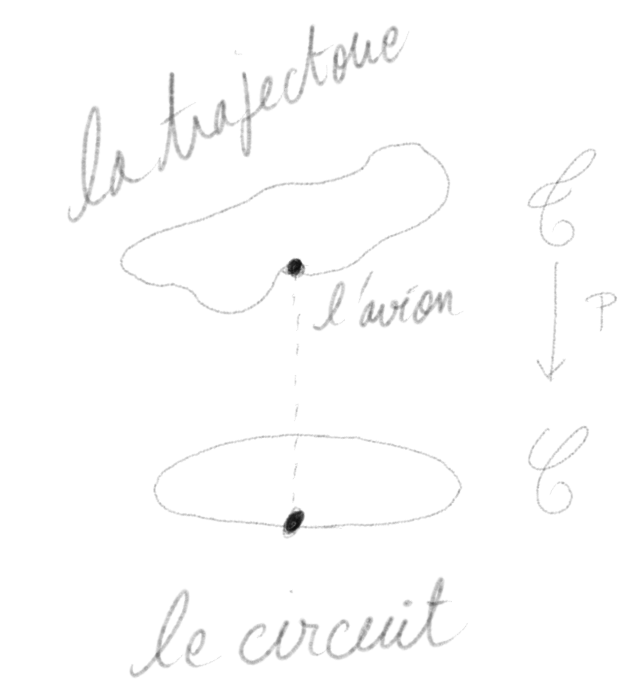 la trajectoire
l'avion
P
le circuit